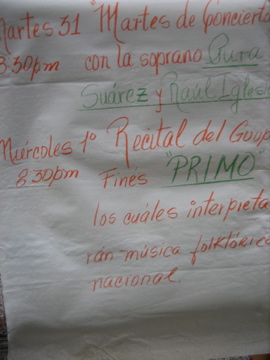 Martes 31 "Martes de Concierto
8:30pm con la soprano Pura
Suárez y Raúl Iglesi
Miércoles 1º Recital del Grupo
8:30pm Fines "PRIMO"
los cuáles interpreta
rán música folklórica
nacional.